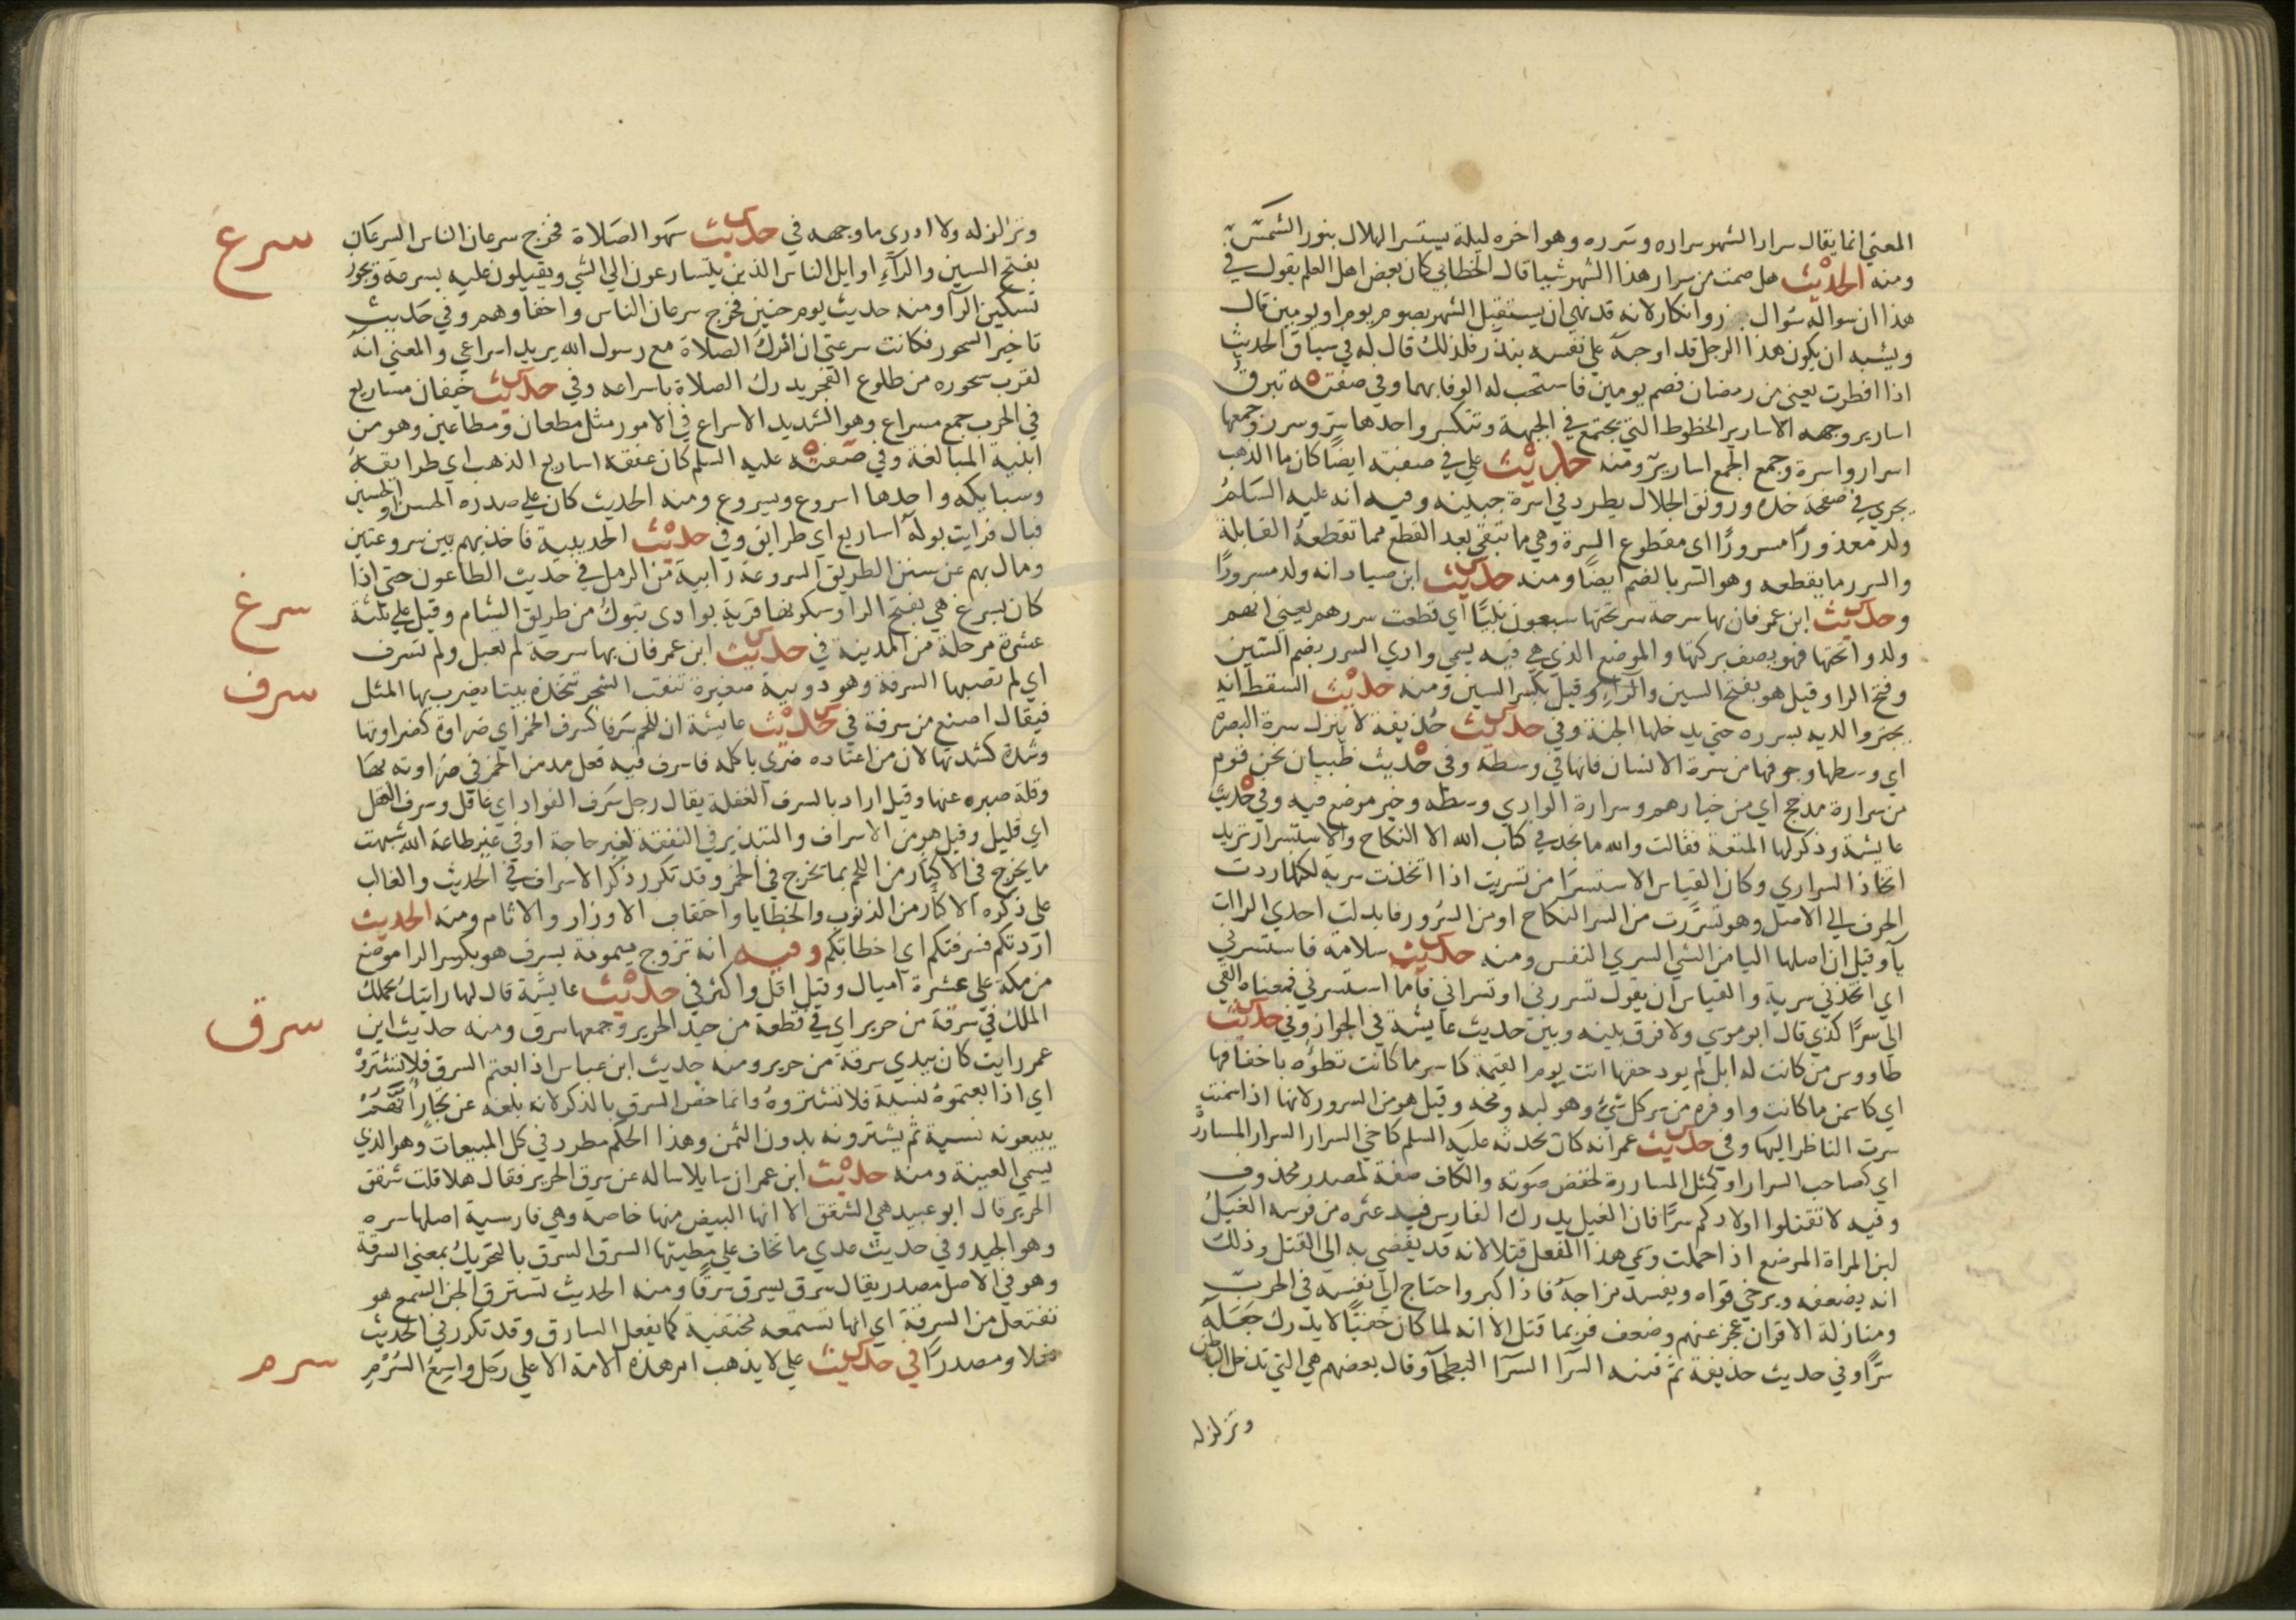 المعني انما يقال سرار الشهر سراره وسرره وهو اخره ليلة يستسر الهلال بنور الشمس
ومنه الحديث هل صمت من سرار هذا الشهر شيا قال الخطابي كان بعض اهل العلم يقول في
هذا ان سواله سُوال زجر وانكار لانه قد نهي ان يستقبل الشهر بصوم يوم او يومين قال
ويشبه ان يكون هذا الرجل قد اوجبه علي نفسه بنذر فلذلك قال له في سياق الحديث
اذا افطرت يعني من رمضان فصم يومين فاستحب له الوفا بهما وفي صفته تبرق
اسارير وجهه الاسارير الخطوط التي تجتمع في الجبهة وتتكسر واحدها سِرّ وسرر وجمعها
اسرار واسرة وجمع الجمع اسارير ومنه حديث علي في صفته ايضًا كان ما الذهب
يجري في صفحة خده ورونق الجلال يطرد في اسرة جبينه وفيه انه عليه السلمُ
ولد معذورًا مسرورًا اي مقطوع السرة وهي ما تبقي بعد القطع مما تقطعه القابلة
والسرر ما يقطعه وهو السر بالضم ايضًا ومنه حديث ابن صياد انه ولد مسرورًا
وحديث ابن عمر فان بها سرحة سر تحتها سبعون نبيًّا اي قطعت سررهم يعني انهم
ولدوا تحتها فهو يصف بركتها والموضع الذي هي فيه يسمي وادي السرر بضم السين
وفتح الرا وقيل هو بفتح السين والراءِ وقيل بكسر السين ومنه حديث السقط انه
يجتر والديه بسرره حتي يدخلها الجنة وفي حديث حُذيفة لا ينزل سرة البصره
اي وسطها وجوفها من سرة الانسان فانها في وسطه وفي حديث ظبيان نحن قوم
من سرارة مذحج اي من خيارهم وسرارة الوادي وسطه وخير موضع فيه وفي حديث
عايشة وذكر لها المتعة فقالت والله ما نجد في كتاب الله الا النكاح والاستسرار تريد
اتخاذ السراري وكان القياس الاستسرا من تسريت اذا اتخذت سرية لكنها ردت
الحرف الي الاصل وهو تسررت من السر النكاح او من السُرور فابدلت احدي الراات
يآ وقيل ان اصلها اليا من الشي السري النفيس ومنه حديث سلامة فاستسرني
اي اتخذني سرية والقياس ان يقول تسررني او تسراني فاما استسرني فمعناه القي
الي سرًّا كذي قال ابو موسي ولا فرق بينه وبين حديث عايشة في الجواز وفي حديث
طاووس من كانت له ابل لم يود حقها اتت يوم القيمة كاسر ما كانت تطؤه باخفافها
اي كاسمن ما كانت واوفره من سر كل شيءٍ وهو لبه ومخه وقيل هو من السرور لانها اذا سمنت
سرت الناظر اليها وفي حديث عمر انه كان يحدثه عليه السلم كاخي السرار السرار المساررة
اي كصاحب السرار او كمثل المساررة لخفض صوته والكاف صفة لمصدر محذوف
وفيه لا تقتلوا اولادكم سرًّا فان الغيل يدرك الفارس فيدعثره من فرسه الغيلُ
لبن المراة المرضع اذا حملت وسمي هذا الفعل قتلا لانه قد يفضي به الي القتل وذلك
انه يضعفه ويرخي قواه ويفسد مزاجه فاذا كبر واحتاج الي نفسه في الحرب
ومنازلة الاقران عجز عنهم وضعف فربما قتل الا انه لما كان خفيًّا لا يدرك جَعَلَه
سرًّا وفي حديث حذيفة ثم فتنه السرّا السرآ البطحآ وقال بعضهم هي التي تدخل الباطن
وتزلزله
وتزلزله ولا ادري ما وجهه في حديث سهو الصلاة فخرج سرعان الناس السرعَان
سرع
بفتح السين والرآءِ اوايل الناس الذين يتسارعون الي الشي ويقبلون عليه بسرعة ويجوز
تسكين الرآ ومنه حديث يوم حنين فخرج سرعان الناس واخفاوهم وفي حديث
تاخير السحور فكانت سرعتي ان ادركُ الصلاة مع رسول الله يريد اسراعي والمعني انه
لقرب سحوره من طلوع الفجر يدرك الصلاة باسراعه وفي حديث خيفان مساريع
في الحرب جمع مسراع وهو الشديد الاسراع في الامور مثل مطعان ومطاعين وهو من
ابنية المبالغة وفي صفته عليه السلم كان عنقه اساريع الذهب اي طرايقه
وسبايكه واحدها اسروع ويسروع ومنه الحديث كان علي صدره الحسن او الحسين
فبال فرايت بوله اساريع اي طرايق وفي حديث الحديبية فاخذ بهم بين سروعتين
ومال بهم عن سنن الطريق السروعة رابية من الرمل في حديث الطاعون حتي اذا
سرغ
كان بسرغ هي بفتح الرا وسكونها قرية بوادي تبوكُ من طريق الشام وقيل علي ثلثة
عشرة مرحلة من المدينة في حديث ابن عمر فان بها سرحة لم تعبل ولم تسرف
سرف
اي لم تصبها السرفة وهو دويبة صغيرة تثقب الشجر تتخذه بيتا يضرب بها المثل
فيقال اصنع من سرفة في حديث عايشة ان للحم سَرفا كسرف الخمر اي ضراوة كضراوتها
وشدة كشدتها لان من اعتاده ضري باكله فاسرف فيه فعل مدمن الخمر في ضراوته بها
وقلة صبره عنها وقيل اراد بالسرف الغفلة يقال رجل سَرف الفواد اي غافل وسرف العقل
اي قليل وقيل هو من الاسراف والتبذير في النفقة لغير حاجة او في غير طاعة الله شبهت
ما يخرج في الاكثار من اللحم بما تخرج في الخمر وقد تكرر ذكر الاسراف في الحديث والغالب
علي ذكره الاكثار من الذنوب والخطايا واحتقاب الاوزار والاثام ومنه الحديث
اردتكم فسرفتكم اي اخطاتكم وفيه انه تزوج ميمونة بسرف هو بكسر الرا موضع
من مكة علي عشرة اميال وقيل اقل واكثر في حديث عايشة قال لها رايتك يحملك
سرق
الملك في سَرقة من حرير اي في قطعة من جيد الحرير وجمعها سرق ومنه حديث ابن
عمر رايت كان بيدي سرقة من حرير ومنه حديث ابن عباس اذا بعتم السرق فلا تشتروْه
اي اذا بعتموهُ نسية فلا تشتروهُ وانما خص السرق بالذكر لانه بلغه عن تجارٍ انهم
يبيعونه نسية ثم يشترونه بدون الثمن وهذا الحكم مطرد في كل المبيعات وهو الذي
يسمي العينة ومنه حديث ابن عمر ان سايلا ساله عن سرق الحرير فقال هلا قلت شقق
الحرير قال ابو عبيد هي الشقق الا انها البيض منها خاصة وهي فارسية اصلها سره
وهو الجيد وفي حديث عدي ما نخاف علي مطيتها السرق السرق بالتحريكُ بمعني السرقة
وهو في الاصل مصدر يقال سرق يسرق سَرقًا ومنه الحديث تسترق الجن السمع هو
تفتعل من السرقة اي انها تستمعه مختفية كما يفعل السارق وقد تكرر في الحديث
فعلا ومصدرًا في حديث علي لا يذهب امر هذه الامة الا علي رَجل واسِع السُرْمِ
سرم